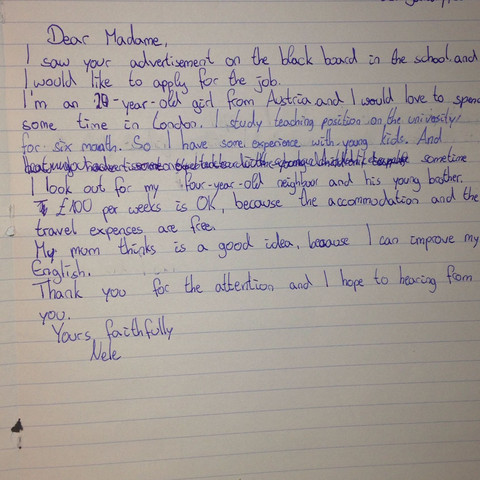 Dear Madame,
I saw your advertisement on the black board in the school and
I would like to apply for the job.
I'm an 20-year-old girl from Austria and I would love to spend
some time in London. I study teaching position on the university
for six month. So I have some experience with young kids. And
sometime
I look out for my four-year-old neighbour and his young brother.
£100 per weeks is OK, because the accommodation and the
travel expenses are free.
My mom thinks is a good idea, because I can improve my
English.
Thank you for the attention and I hope to hearing from
you.
Yours faithfully
Nele